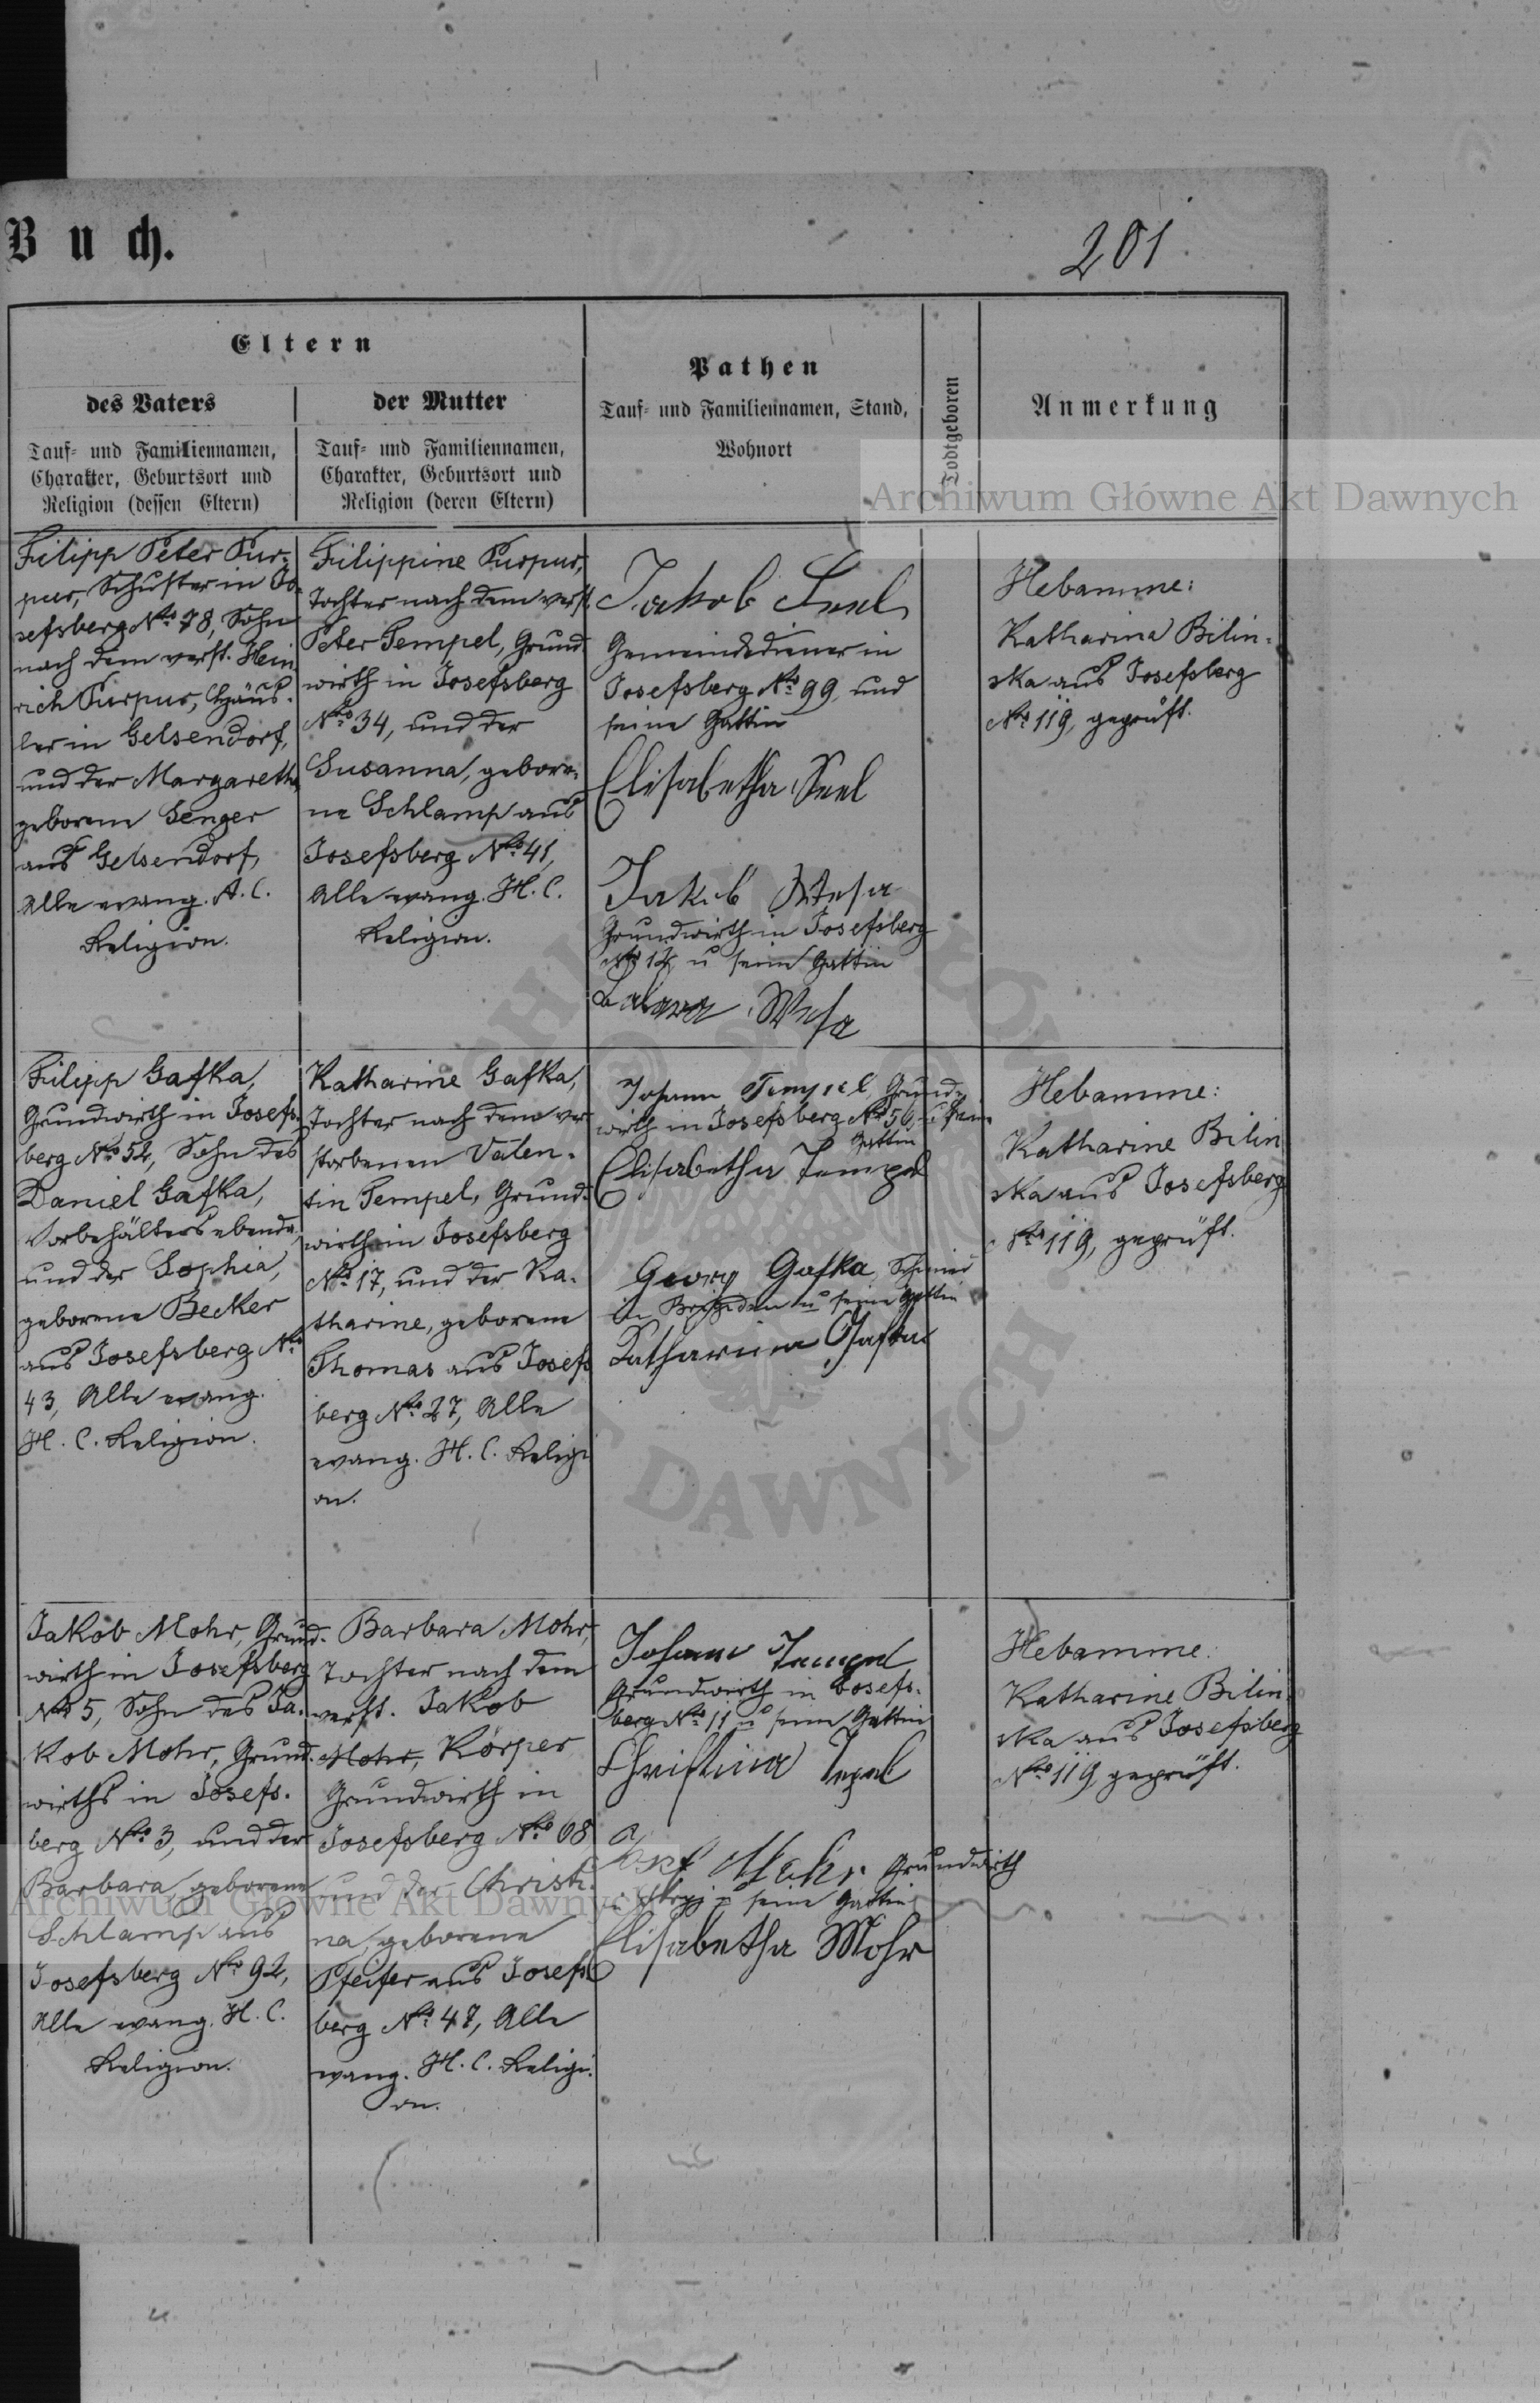 Buch.
201
Eltern
des Vaters
Tauf- und Familiennamen,
Charakter, Geburtsort und
Religion (dessen Eltern)
der Mutter
Tauf- und Familiennamen,
Charakter, Geburtsort und
Religion (deren Eltern)
Pathen
Tauf- und Familiennamen, Stand,
Wohnort
Todtgeboren
Anmerkung
Archiwum Główne Akt Dawnych
Filipp Peter Pur-
pur, Schuster in Jo-
sefsberg No 78, Sohn
nach dem verst. Hein
rich Purpur, Häus-
ler in Gelsendorf,
und der Margaretha
geborene Senger
aus Gelsendorf,
Alle evang. A. C.
Religion.
Filippine Purpur,
Tochter nach dem verst.
Peter Tempel, Grund
wirth in Josefsberg
No 34, und der
Susanna, gebore-
ne Schlamp aus
Josefsberg No 41,
Alle evang. H. C.
Religion.
Jakob Seel
Gemeindediener in
Josefsberg No 99, und
seine Gattin
Elisabetha Seel
Jakob Wesa
Grundwirth in Josefsberg
No 12, u seine Gattin
Wesa
Hebamme:
Katharina Bilin-
ska aus Josefsberg
No 119, geprüft.
Filipp Gafka,
Grundwirth in Josefs-
berg No 54, Sohn des
Daniel Gafka,
Vorbehälters ebenda,
und der Sophia,
geborene Becker
aus Josefsberg No
43, Alle evang.
H. C. Religion.
Katharine Gafka,
Tochter nach dem ver
storbenen Valen-
tin Tempel, Grund-
wirth in Josefsberg
No 17, und der Ka-
tharine, geborene
Thomas aus Josefs
berg No 27, Alle
evang. H. C. Religi
on.
Johann Tempel Grund-
wirth in Josefsberg No 56, u sein
Gattin
Elisabetha Tempel
Georg Gafka, Schmied
in Brigidau u seine Gattin
Katharina Gafka
Hebamme:
Katharine Bilin
ska aus Josefsberg
No 119, geprüft.
Jakob Mohr, Grund-
wirth in Josefsberg
No 5, Sohn des Ja-
kob Mohr, Grund-
wirths in Josefs-
berg No 3, und der
Barbara geborene
Schlamp aus
Josefsberg No 92,
Alle evang. H. C.
Religion.
Barbara Mohr,
Tochter nach dem
verst. Jakob
Mohr, Körper
Grundwirth in
Josefsberg No 68
und der Christi-
na, geborene
Pfeifer aus Josefs
berg No 47, Alle
evang. H. C. Religi-
on.
Johann Tempel
Grundwirth in Josefs-
berg No 11 u seine Gattin
Christina
Mohr Grundwirth
in Stryj u seine Gattin
Elisabetha Mohr
Hebamme:
Katharine Bilin-
ska aus Josefsberg
No 119, geprüft.
Archiwum Główne Akt Dawnych